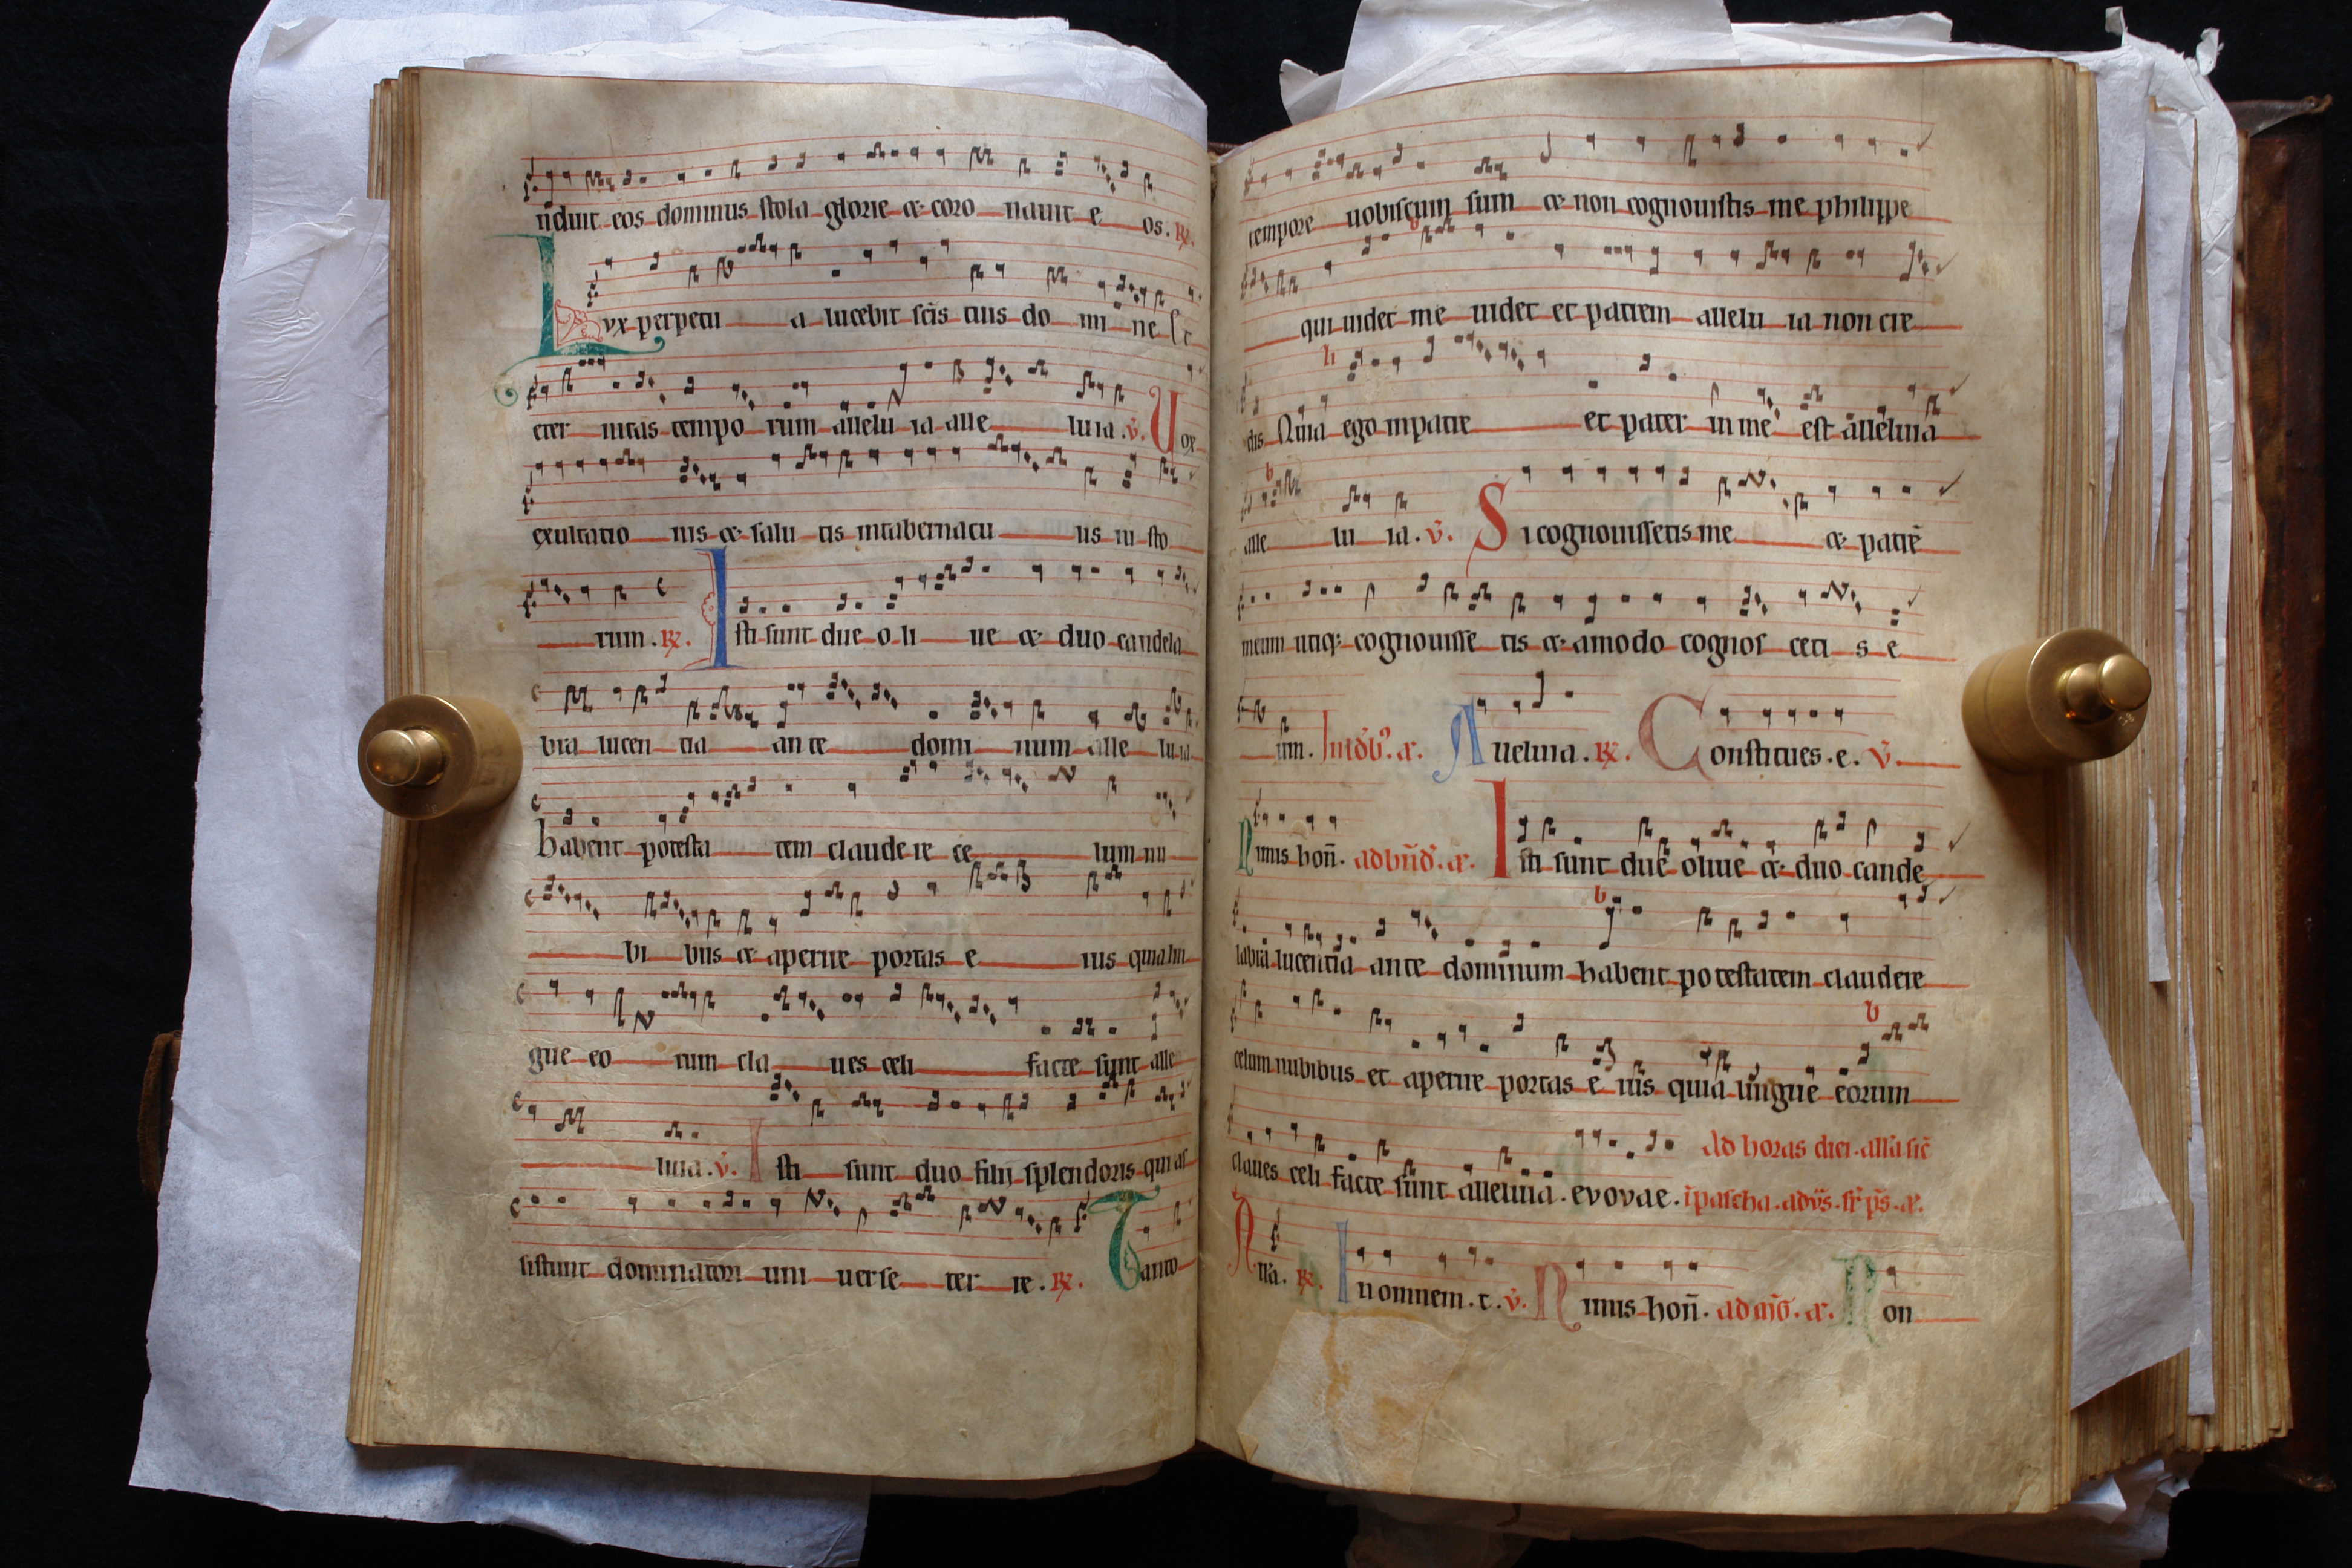 nduit eos dominus stola glorie & coro nauit e os. R̸.
Lvx perpetu a lucebit sc̄is tuis do mi ne Et
eter nitas tempo rum allelu ia alle luia. v̄. Uox
exultatio nis & salu tis intabernacu lis iu sto
rum. R̸. Isti sunt due o li ue & duo candela
bra lucen tia an te domi num alle luia
habent potesta tem claude re ce lum nu
bi bus & aperire portas e ius quia lin
gue eo rum cla ues celi facte sunt alle
luia. v̄. Isti sunt duo filii splendoris qui as
sistunt dominatori uni uerse ter re. R̸. Tanto
tempore uobiscum sum & non cognouistis me philippe
qui uidet me uidet et patrem allelu ia non cre
dis Quia ego inpatre et pater in me est alleluia
alle lu ia. v̄. Si cognouissetis me & patrē
meum utiq; cognouisse tis & amodo cognos ceti s e
um. Aueluia. R̸. Constitues. e. v̄.
Nimis hon̄. Isti sunt due oliue & duo cande
labra lucentia ante dominum habent potestatem claudere
celum nubibus et aperire portas e ius quia lingue eorum
Ad horas diei. all'a sic̄
claues celi facte sunt alleluia. evovae. ī pascha.
All'a. R̸. Inomnem. t. v̄. Nimis hon̄. Non